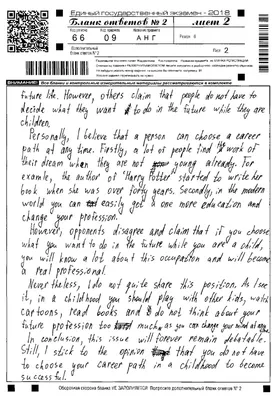 Единый государственный экзамен - 2018
Бланк ответов № 2 лист 2
Код региона Код предмета Название предмета
66 09 АНГ
Лист 2
future life. However, others claim that people do not have to
decide what they want to do in the future while they are
children.
Personally, I believe that a person can choose a career
path at any time. Firstly, a lot of people find work of
their dream when they are not young already. For
examle, the author of "Harry Potter" started to write her
book when she was over forty years. Secondly, in the modern
world you can easily get one more education and
change your profession.
However, opponents disagree and claim that if you choose
what you want to do in the future while you are a child,
you will know a lot about this occupation and will become
a real professional.
Nevertheless, I do not quite share this position. As I see
it, in a childhood you should play with other kids, watch
cartoons, read books and do not think about your
future profession too much, as you can change your mind at any time.
In conclusion, this issue will forever remain debatable.
Still, I stick to the opinion that you do not have
to choose your career path in a childhood to become
successful.